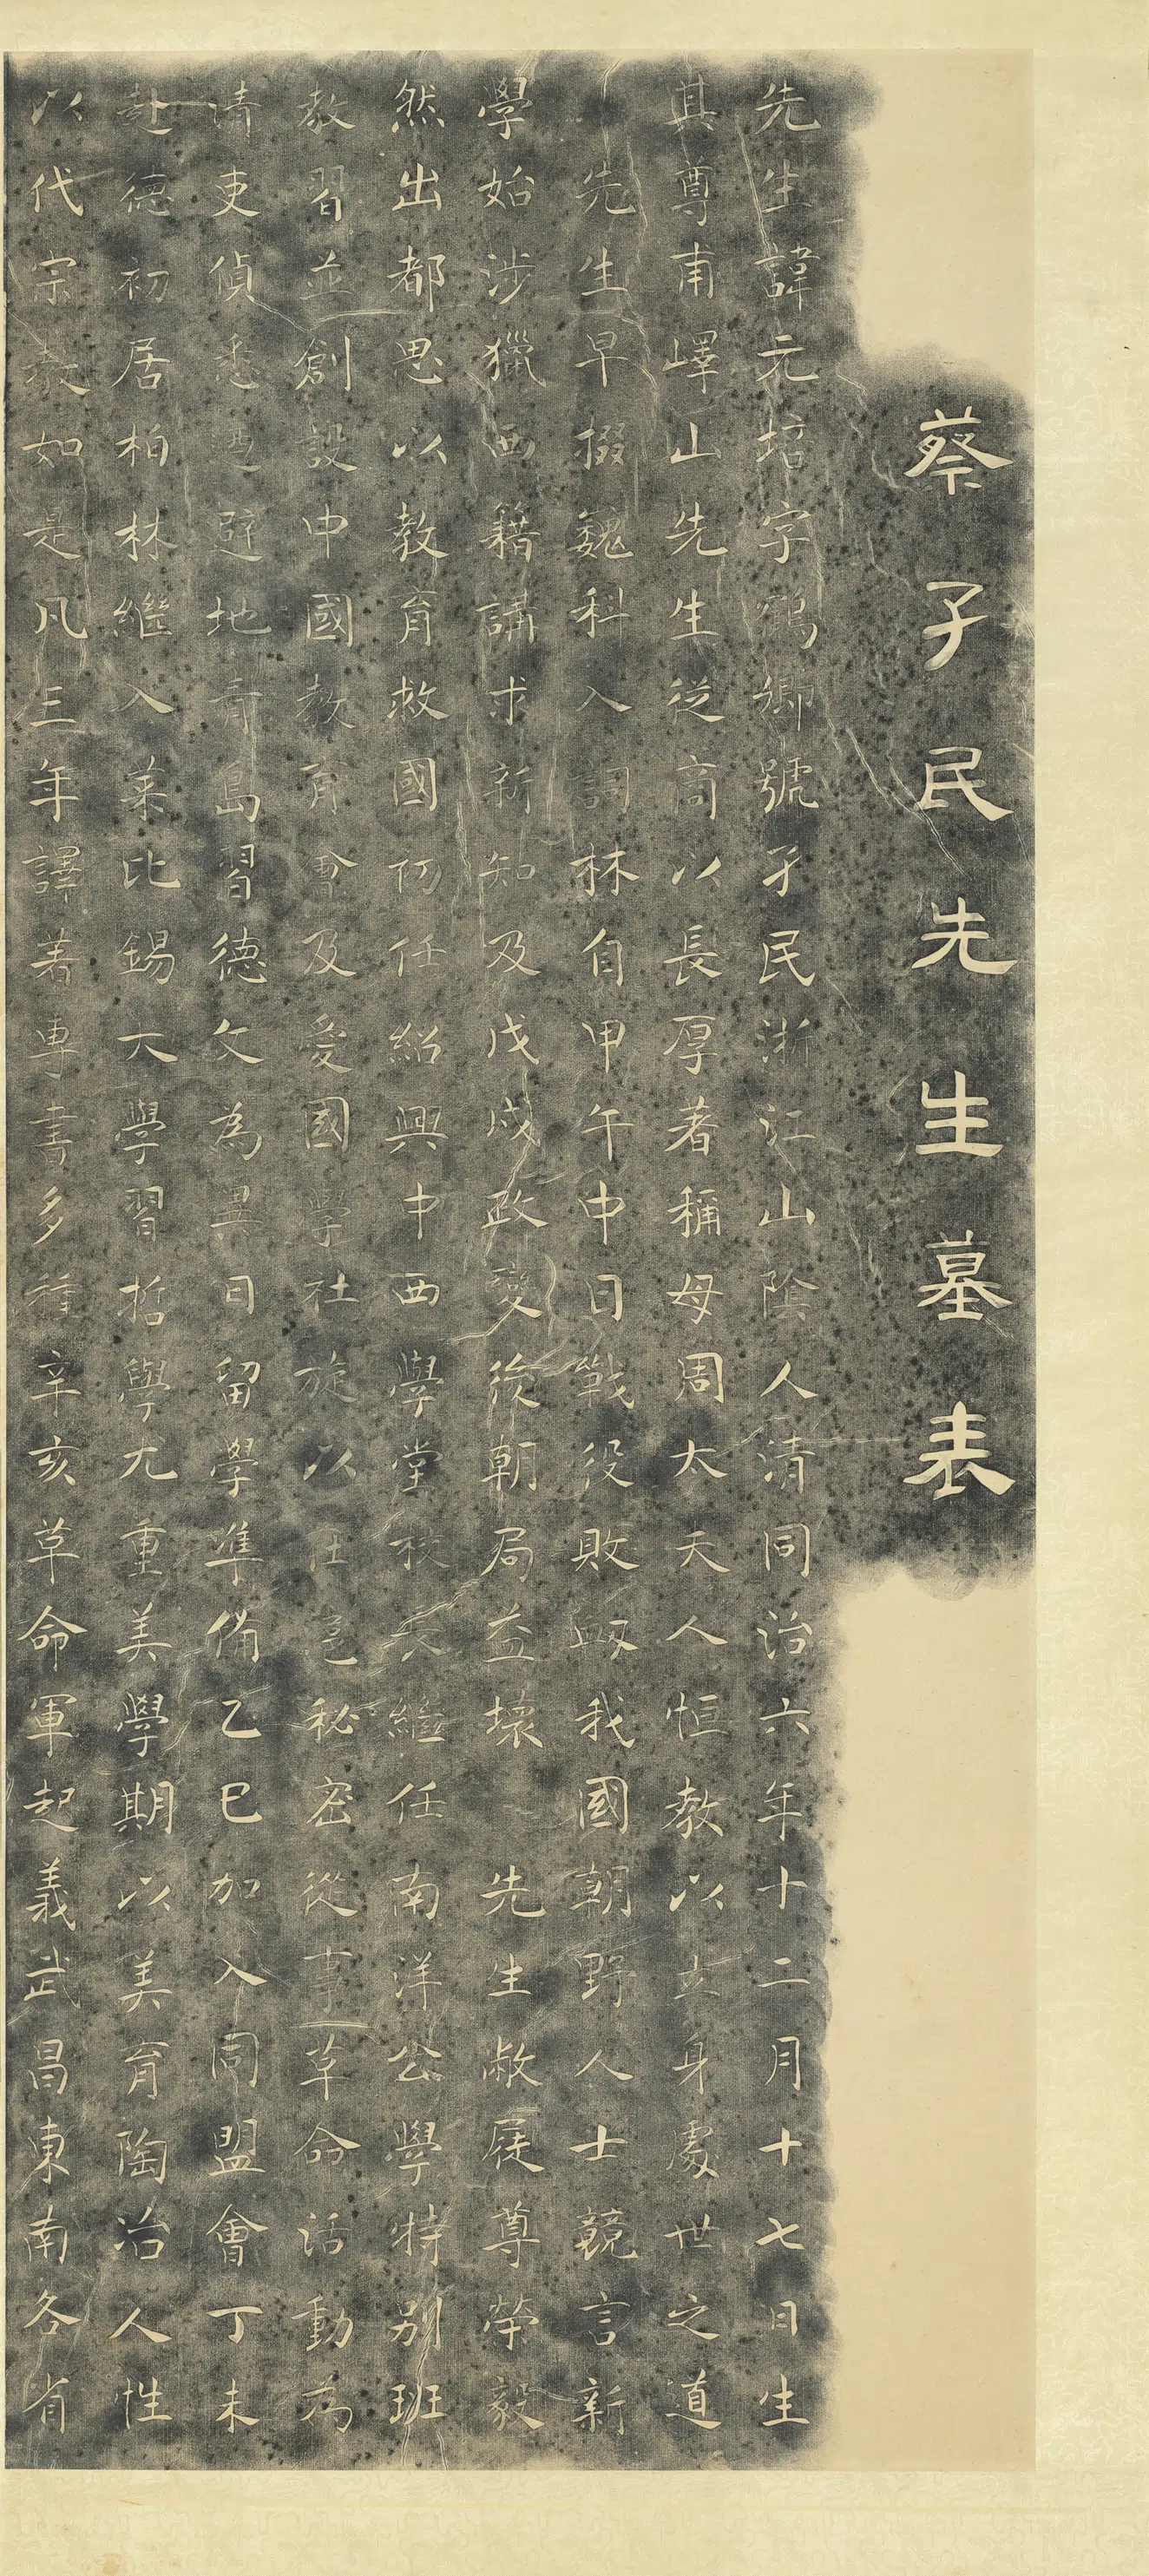 蔡孑民先生墓表
先生諱元培字鶴卿號孑民浙江山陰人清同治六年十二月十七日生
其尊甫嶧山先生從商以長厚著稱母周太夫人恒教以立身處世之道
先生早掇巍科入詞林自甲午中日戰役敗衂我國朝野人士競言新
學始涉獵西籍講求新知及戊戌政變後朝局益壞 先生敝屣尊榮毅
然出都思以教育救國初任紹興中西學堂校長繼任南洋公學特別班
教習並創設中國教育會及愛國學社旋以在邑秘密從事革命活動為
清吏偵悉迺避地青島習德文為異日留學準備乙巳加入同盟會丁未
赴德初居柏林繼入萊比錫大學習哲學尤重美學期以美育陶冶人性
以代宗教如是凡三年譯著專書多種辛亥革命軍起義武昌東南各省